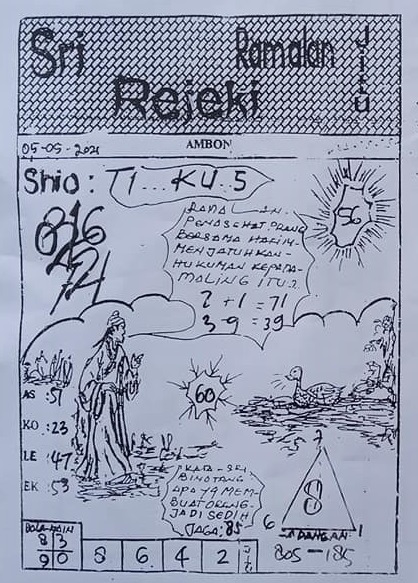 Sri
Ramalan
JITU
Rejeki
AMBON
05-05-2021
Shio: TI...KU.5
56
RAMALAN.
PENASEHAT PRANG
BERSAMA HAKIM-
MENJATUHKAN-
HUKUMAN KEPADA-
MALING ITU2
2+1=71
3-9=39
AS :51
KO :23
LE :47
EK :53
60
KATA-SRI
BINATANG
APA YG MEM-
BUAT ORENG-
JADI SEDIH
JAGA; 85
7
8
6
1
ADANGAN
805-185
BOLA MAIN
83
90
8 6 4 2